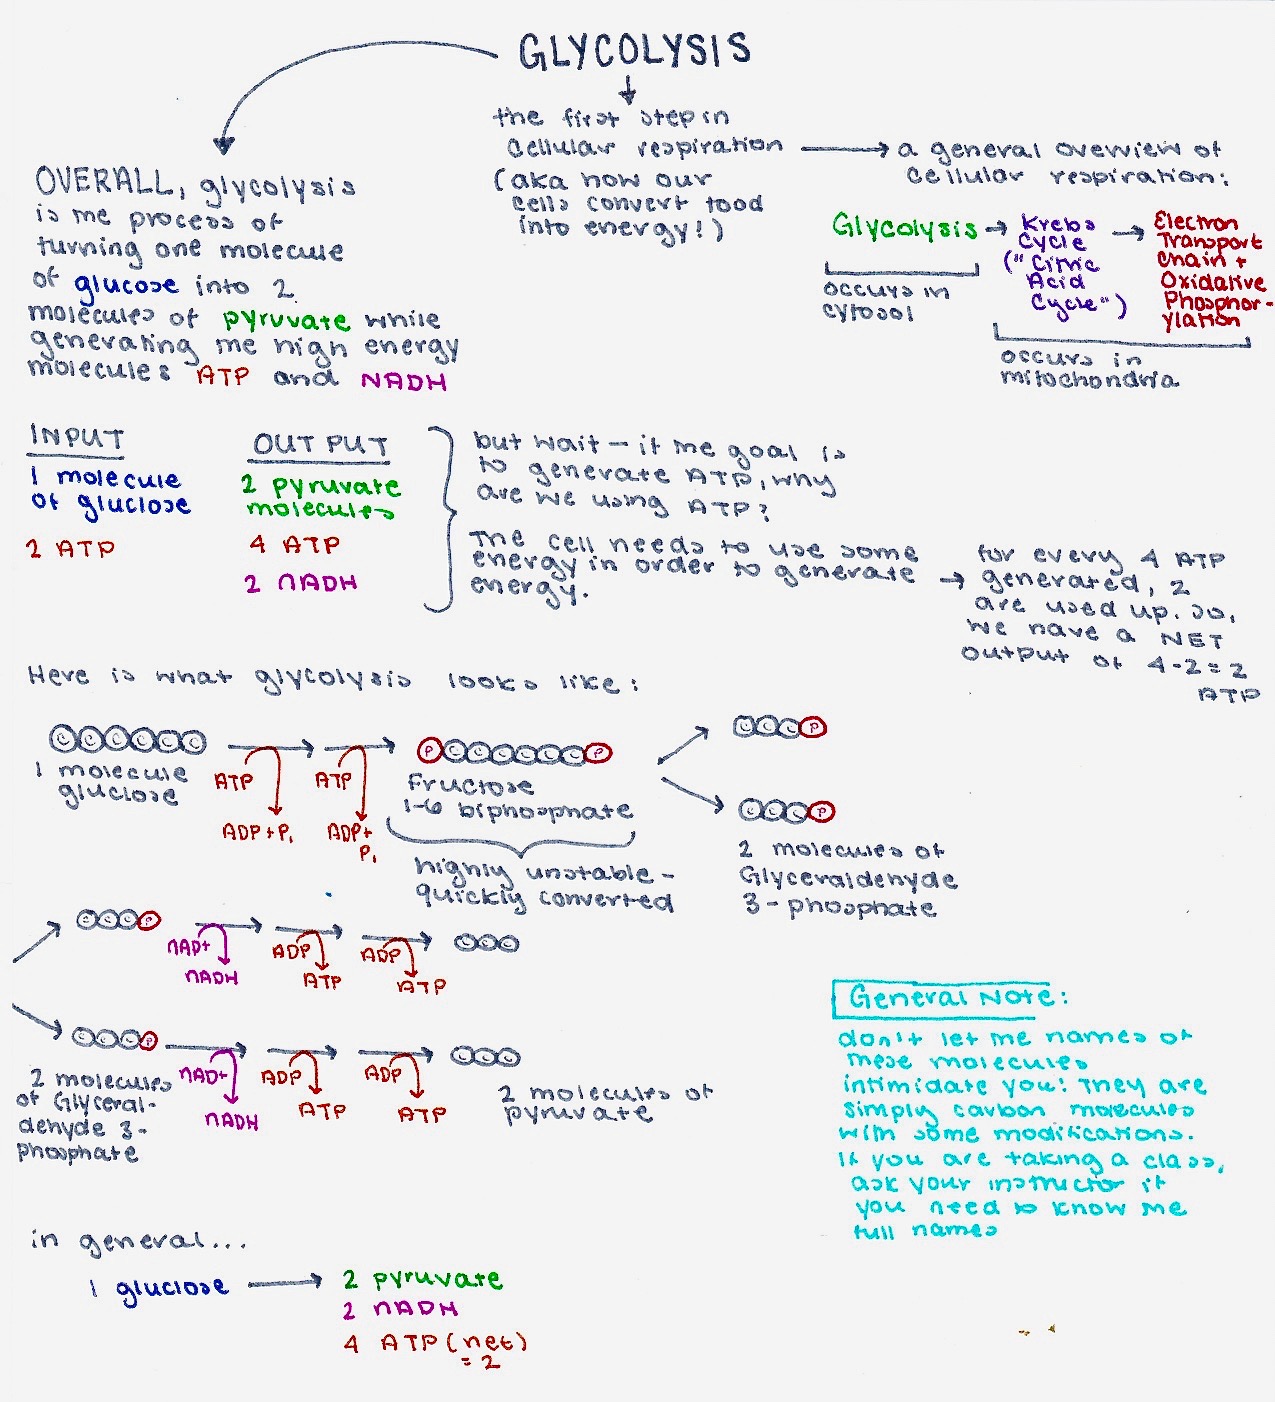 GLYCOLYSIS
the first step in
cellular respiration
(aka how our
cells convert food
into energy!)
a general overview of
cellular respiration:
Glycolysis
occurs in
cytosol
Krebs
Cycle
("Citric
Acid
Cycle")
Electron
Transport
Chain +
Oxidative
Phosphor-
ylation
occurs in
mitochondria
OVERALL, glycolysis
is the process of
turning one molecule
of glucose into 2
molecules of pyruvate while
generating the high energy
molecules ATP and NADH
INPUT
1 molecule
of gluclose
2 ATP
OUTPUT
2 pyruvate
molecules
4 ATP
2 NADH
but wait - if the goal is
to generate ATP, why
are we using ATP?
The cell needs to use some
energy in order to generate
energy.
for every 4 ATP
generated, 2
are used up. so,
we have a NET
output of 4-2=2
ATP
Here is what glycolysis looks like:
C C C C C C
1 molecule
gluclose
ATP
ADP+Pi
ATP
ADP+
Pi
P C C C C C C P
Fructose
1-6 biphosphate
highly unstable -
quickly converted
C C C P
C C C P
2 molecules of
Glyceraldehyde
3-phosphate
C C C P
NAD+
NADH
ADP
ATP
ADP
ATP
C C C
C C C P
NAD+
NADH
ADP
ATP
ADP
ATP
C C C
2 molecules
of Glyceral-
dehyde 3-
phosphate
2 molecules of
pyruvate
General Note:
don't let the names of
these molecules
intimidate you! They are
simply carbon molecules
with some modifications.
If you are taking a class,
ask your instructor if
you need to know the
full names
in general...
1 gluclose
2 pyruvate
2 NADH
4 ATP (net)
= 2